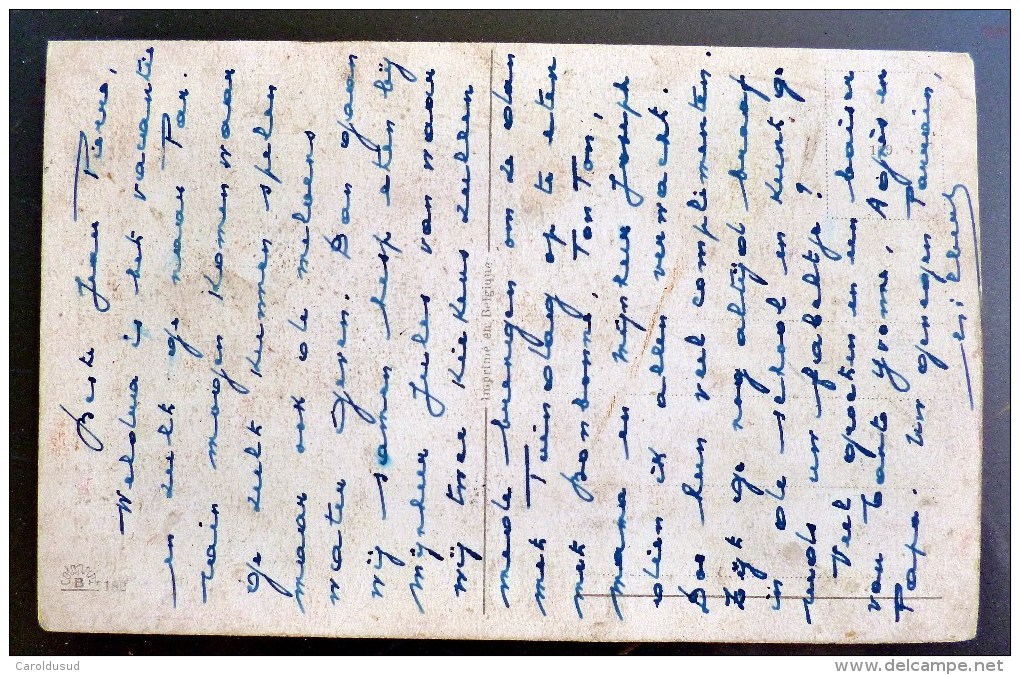 Beste Jean Pierre,
Weldra is het vacantie
en zult ge naar Par
rain mogen komen maar
ge zult kunnen spelen
maar ook de meloens
water geven. Dan gaan
wij samen hesp eten bij
mijnheer Jules van waar
wij twee kiekens zullen
mede brengen om ze dan
met Tuindag op te eten
met Bonbonne, Ton Ton,
mama en mijnheer Joseph
dien ik allen verwacht.
Doe hun veel complimenten.
Zijt ge nog altijd braaf
in de school en kunt ge
reeds uw fabeltje?
Veel groeten en een baiser
van tante Yvonne, Agnès en
Papa. Uw genegen Parrain,
Imprimé en Belgique
B
Caroldusud
www.delcampe.net